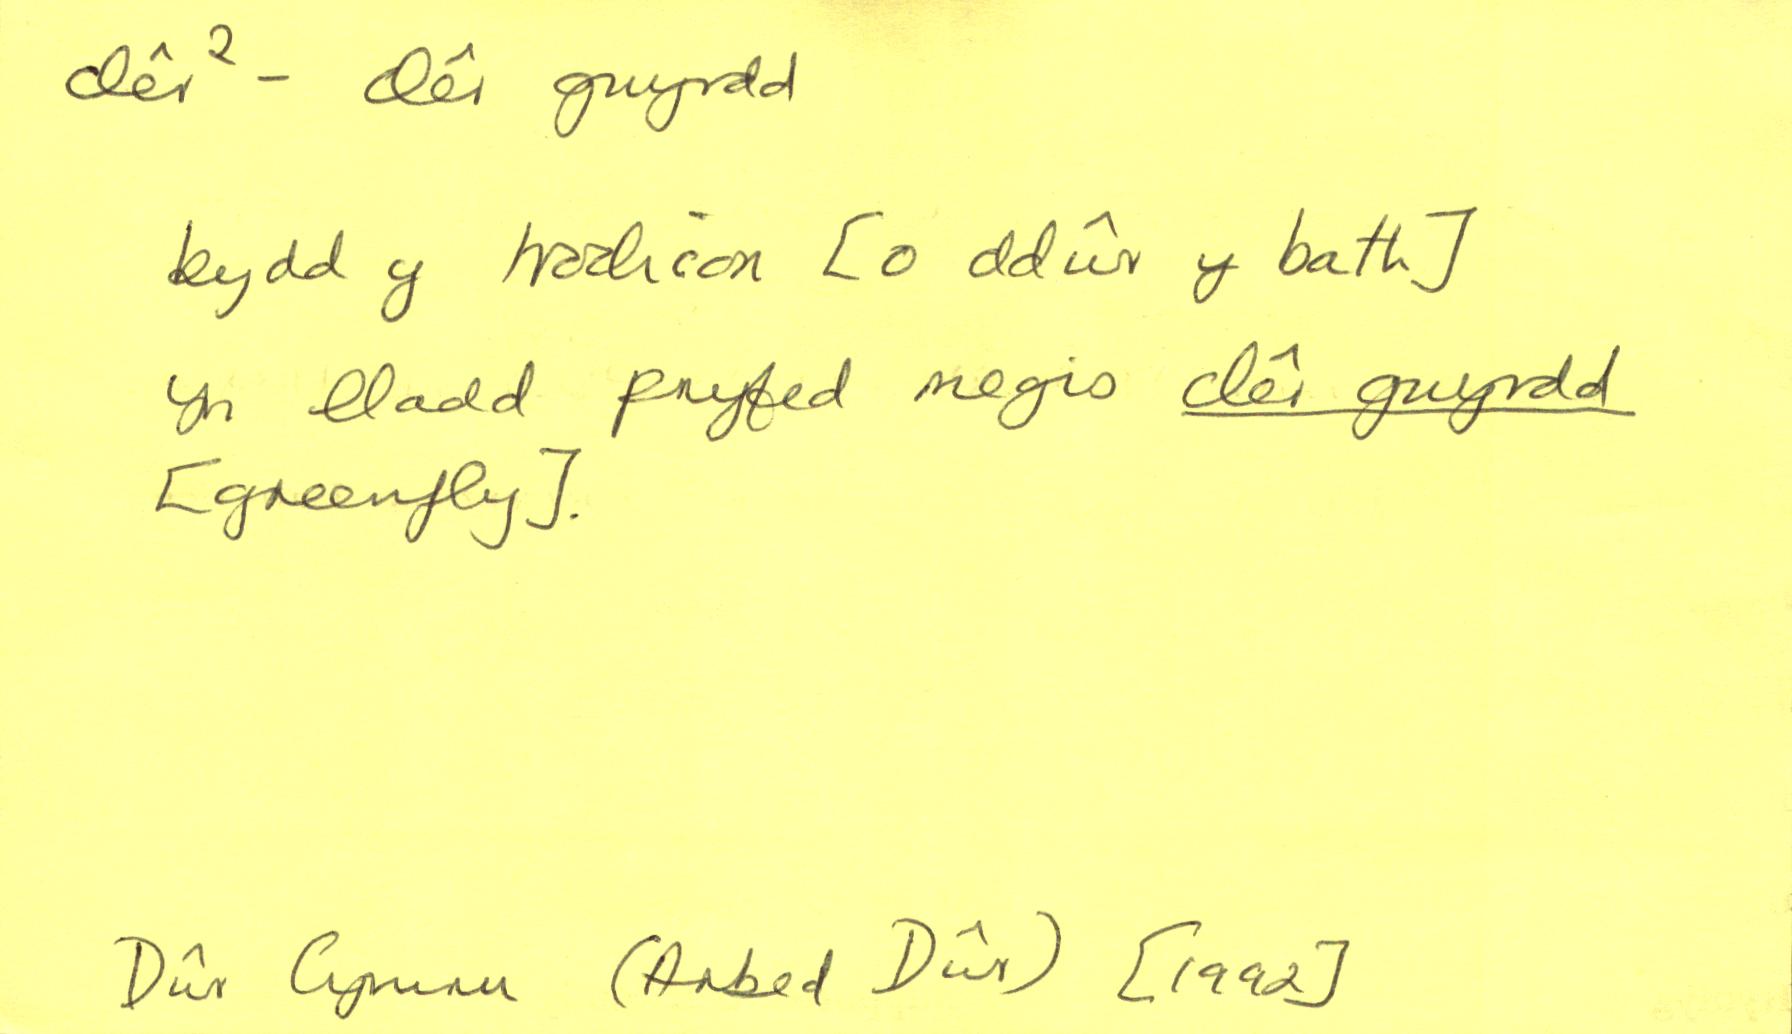 clêr² - clêr gwyrdd
bydd y trochion [o ddŵr y bath]
yn lladd pryfed megis clêr gwyrdd
[greenfly].
Dŵr Cymru (Arbed Dŵr) [1992]